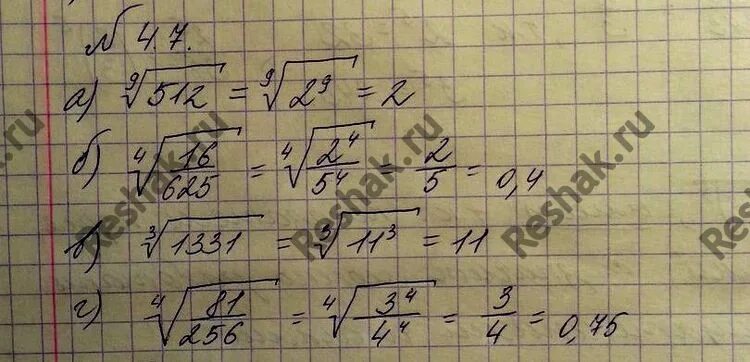 № 4.7.
а) ⁹√512 = ⁹√2⁹ = 2
б) ⁴√(16/625) = ⁴√(2⁴/5⁴) = 2/5 = 0,4
в) ³√1331 = ³√11³ = 11
г) ⁴√(81/256) = ⁴√(3⁴/4⁴) = 3/4 = 0,75
Reshak.ru
Reshak.ru
Reshak.ru